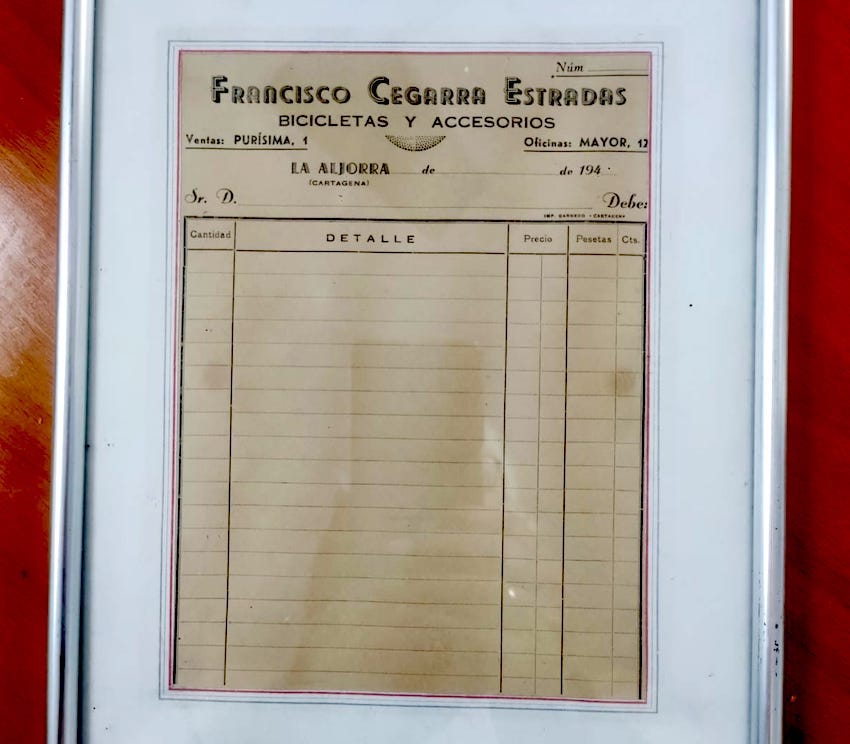 Núm
FRANCISCO CEGARRA ESTRADAS
BICICLETAS Y ACCESORIOS
Ventas: PURÍSIMA, 1 Oficinas: MAYOR, 12
LA ALJORRA de de 194
(CARTAGENA)
Sr. D. Debe:
IMP. GARNERO - CARTAGENA
Cantidad DETALLE Precio Pesetas Cts.